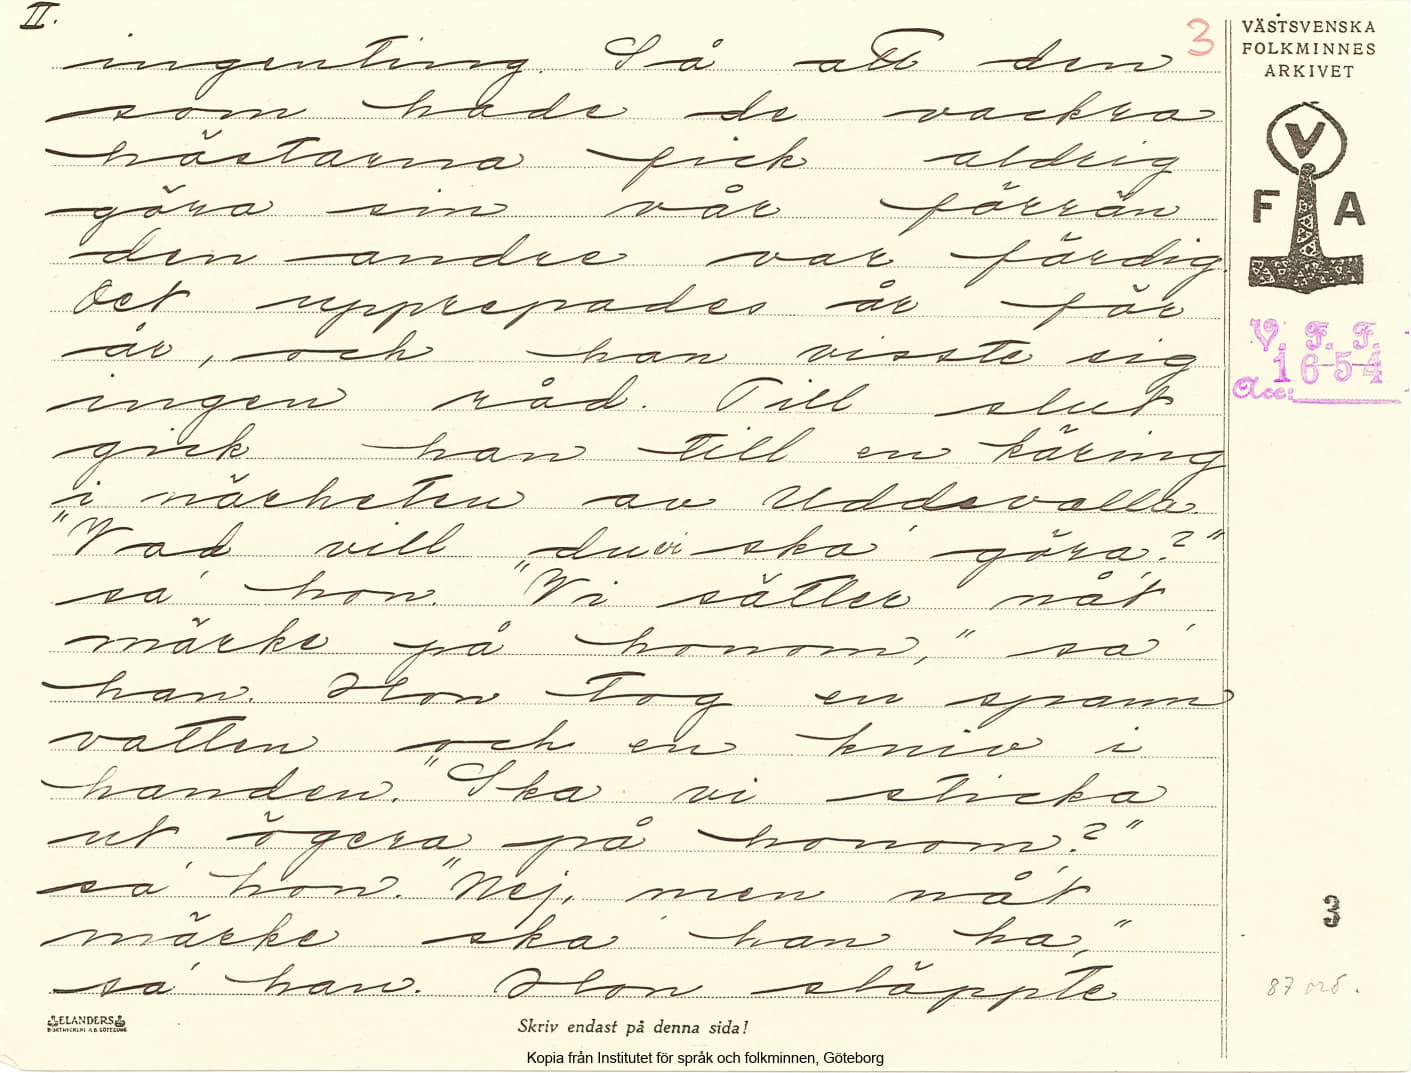 II.
3
ingenting. Så att den
som hade de vackra
hästarna fick aldrig
göra sin vår förrän
den andre var färdig.
Det upprepades år för
år, och han visste sig
ingen råd. Till slut
gick han till en käring
i närheten av Uddevalla.
"Vad vill du vi ska göra?"
sa' hon. "Vi sätter nå't
märke på honom," sa'
han. Hon tog en spann
vatten och en kniv i
handen. "Ska vi sticka
ut ögera på honom?"
sa' hon. "Nej, men nå't
märke ska' han ha,"
sa' han. Hon släppte
VÄSTSVENSKA
FOLKMINNES
ARKIVET
V
F A
V. F. F.
1654
Acc:
3
87 ord.
ELANDERS
BOKTRYCKERI A.B. GÖTEBORG
Skriv endast på denna sida!
Kopia från Institutet för språk och folkminnen, Göteborg